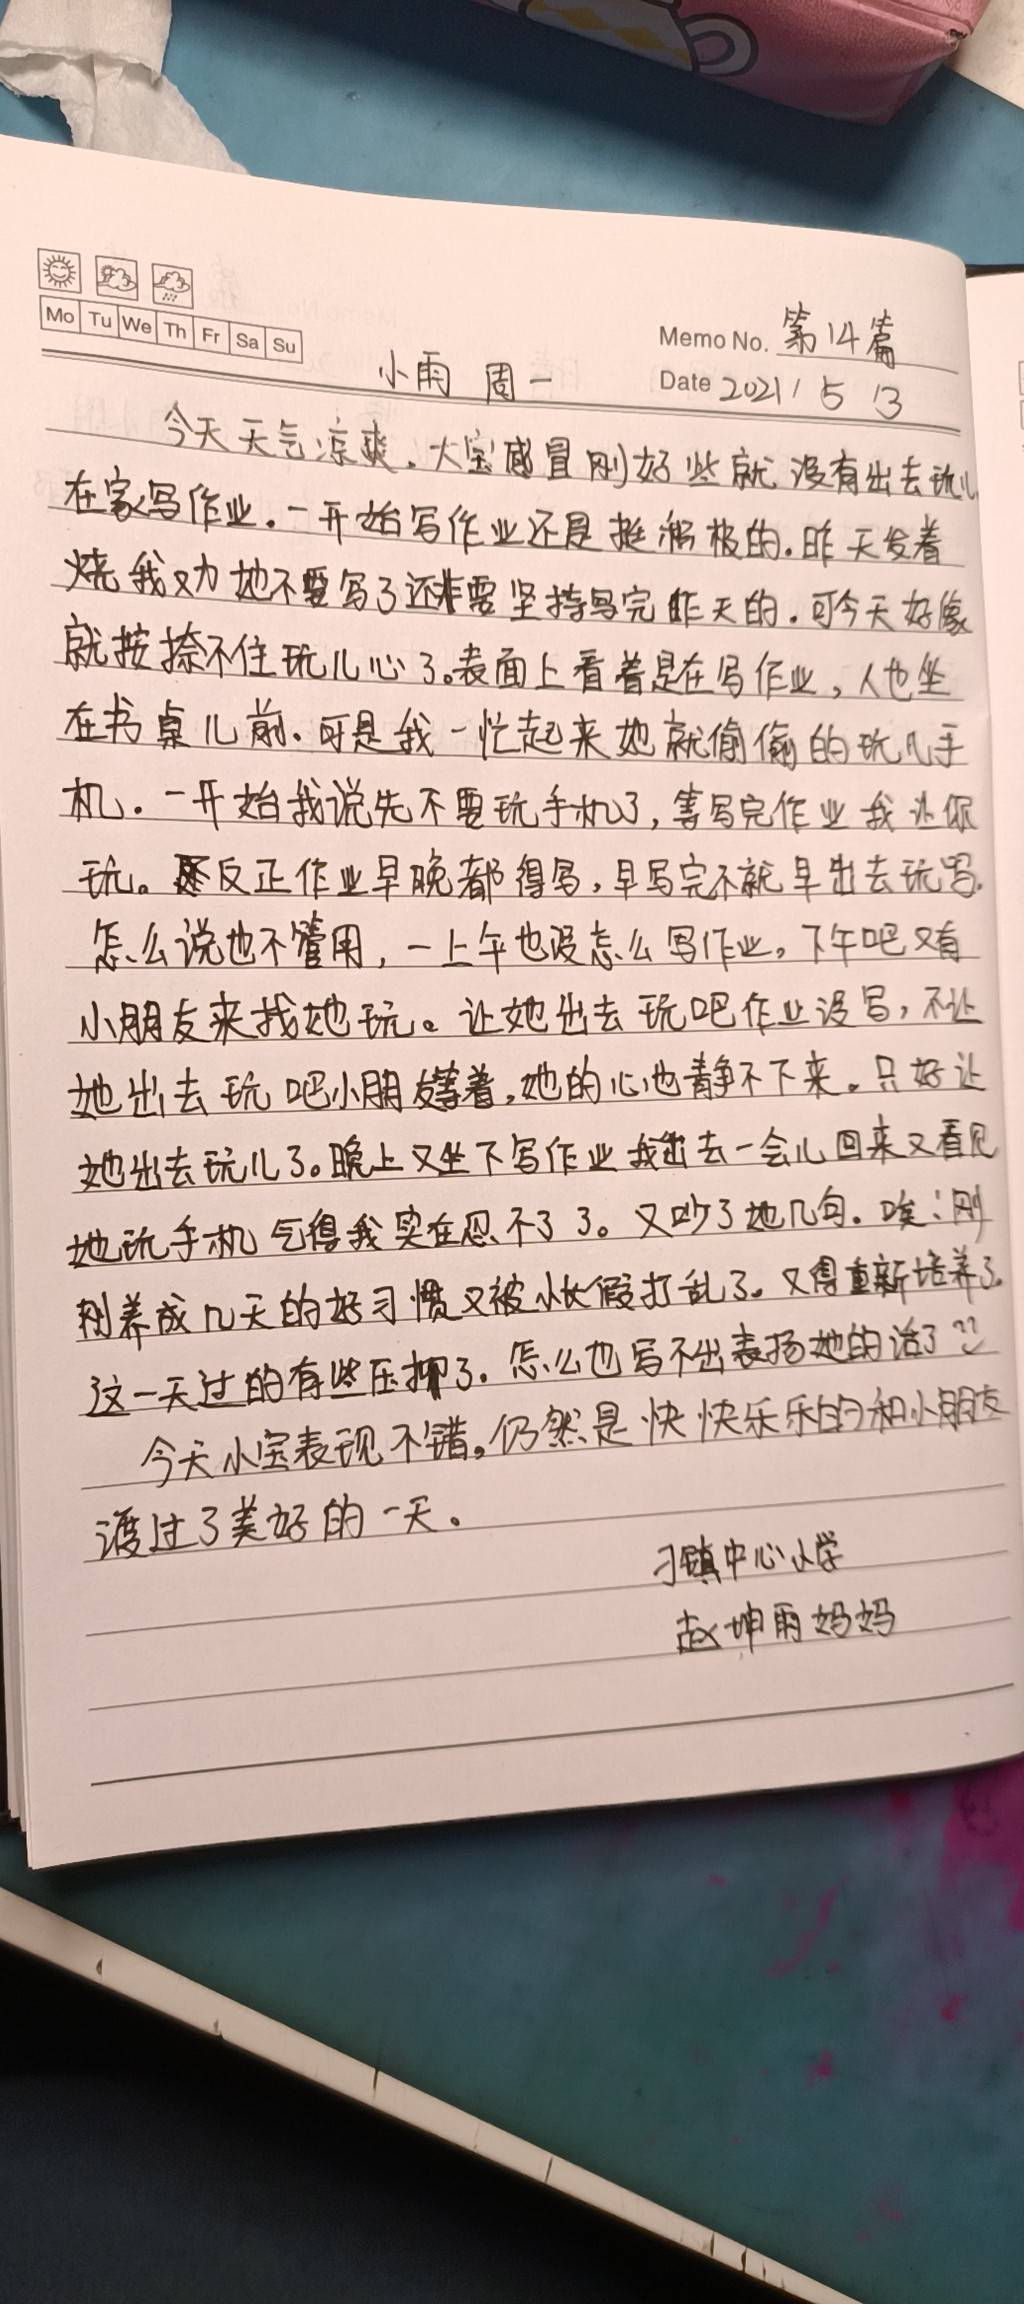 Mo Tu We Th Fr Sa Su
Memo No. 第14篇
小雨 周一
Date 2021 / 5 / 3
今天天气凉爽.大宝感冒刚好些就没有出去玩儿
在家写作业.一开始写作业还是挺积极的.昨天发着
烧我劝她不要写了还非要坚持写完昨天的.可今天好像
就按捺不住玩儿心了。表面上看着是在写作业,人也坐
在书桌儿前.可是我一忙起来她就偷偷的玩儿手
机.一开始我说先不要玩手机了,等写完作业我让你
玩。反正作业早晚都得写,早写完不就早出去玩吗.
怎么说也不管用,一上午也没怎么写作业。下午吧又有
小朋友来找她玩。让她出去玩吧作业没写,不让
她出去玩吧小朋友等着,她的心也静不下来。只好让
她出去玩儿了。晚上又坐下写作业我出去一会儿回来又看见
她玩手机气得我实在忍不了了。又吵了她几句.唉:刚
刚养成几天的好习惯又被小长假打乱了。又得重新培养了。
这一天过的有些压抑了.怎么也写不出表扬她的话了
今天小宝表现不错。仍然是快快乐乐的和小朋友
渡过了美好的一天.
刁镇中心小学
赵坤雨妈妈